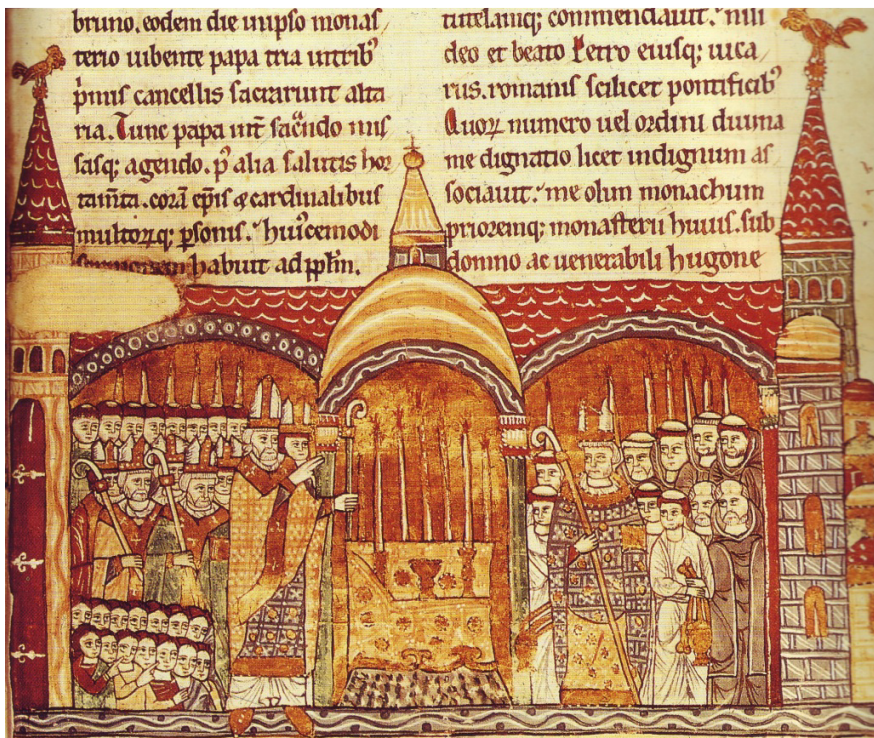 bruno. eodem die in ipso monas
terio iubente papa tria in trib᷒
p̄mis cancellis sacrarunt alta
ria. Tunc papa int̄ sac̄ndo mis
sasq; agendo. p᷒ alia salutis hor
tam̄ta. corā ep̄is ⁊ cardinalibus
multorūq; p̄sonis. huiꝰcemodi
habuit ad pp̄lm.
tutelamq; commendauit. nisi
deo et beato Petro eiusq; uica
riis. romanis scilicet pontificib᷒
Quorꝝ numero uel ordini diuina
me dignatio licet indignum as
sociauit. me olim monachum
prioremq; monasterii huius. sub
domno ac uenerabili hugone